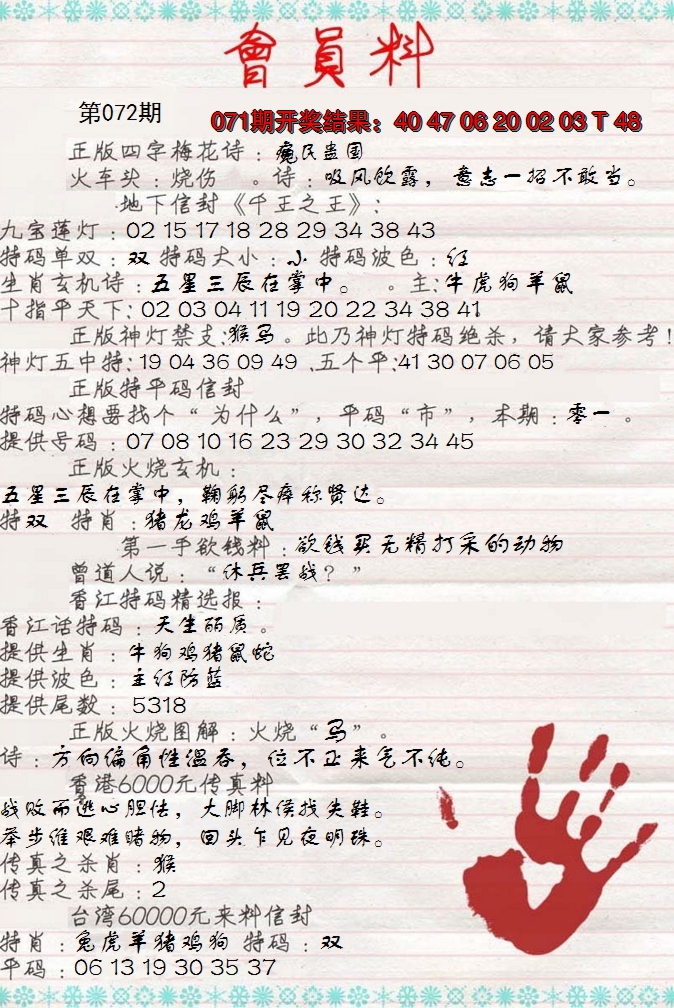 會員料
第072期
071期开奖结果：40 47 06 20 02 03 T 48
正版四字梅花诗：病民蛊国
火车头：烧伤 。诗：吸风饮露，意志一招不敢当。
地下信封《千王之王》：
九宝莲灯：02 15 17 18 28 29 34 38 43
特码单双：双 特码大小：小 特码波色：红
生肖玄机诗：五星三辰在掌中。 。主:牛虎狗羊鼠
十指平天下：02 03 04 11 19 20 22 34 38 41
正版神灯禁支:猴马。此乃神灯特码绝杀，请大家参考!
神灯五中特:19 04 36 09 49 .五个平:41 30 07 06 05
正版特平码信封
特码心想要找个“为什么”，平码“市”，本期：零一 。
提供号码：07 08 10 16 23 29 30 32 34 45
正版火烧玄机：
五星三辰在掌中，鞠躬尽瘁称贤达。
特双 特肖：猪龙鸡羊鼠
第一手欲钱料：欲钱买无精打采的动物
曾道人说：“休兵罢战？”
香江特码精选报：
香江话特码：天生丽质。
提供生肖：牛狗鸡猪鼠蛇
提供波色：主红防蓝
提供尾数：5318
正版火烧图解：火烧“马”。
诗：方向偏角性温吞，位不正来气不纯。
香港6000元传真料
战败而逃心胆怯，大脚林侯找失鞋。
举步维艰难睹物，回头乍见夜明珠。
传真之杀肖：猴
传真之杀尾：2
台湾60000元来料信封
特肖：兔虎羊猪鸡狗 特码：双
平码：06 13 19 30 35 37